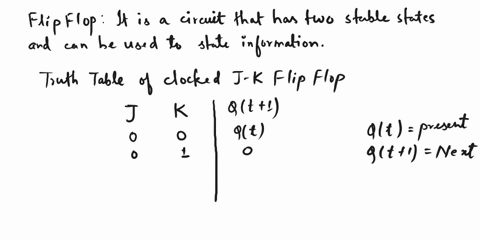 Flip Flop : It is a circuit that has two stable states
and can be used to state information.
Truth Table of clocked J-K Flip Flop
J K Q(t+1)
0 0 Q(t)
0 1 0
Q(t) = present
Q(t+1) = Next